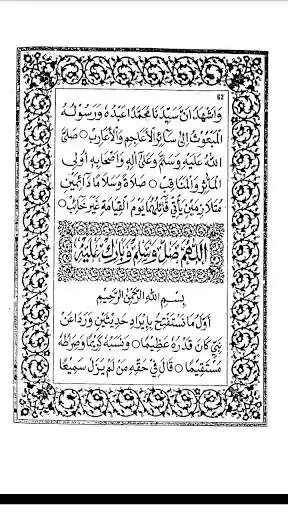 62
وَاَشْهَدُ اَنَّ سَيِّدَنَا مُحَمَّدًا عَبْدُهٗ وَرَسُوْلُهُ
الْمَبْعُوْثُ اِلٰى سَائِرِ الْاَعَاجِمِ وَالْاَعَارِبِ ۞ صَلَّى
اللهُ عَلَيْهِ وَسَلَّمَ وَعَلٰى اٰلِهٖ وَاَصْحَابِهٖ اُولِى
الْمَاٰثِرِ وَالْمَنَاقِبِ ۞ صَلَاةً وَسَلَامًا دَائِمَيْنِ
مُتَلَازِمَيْنِ يَأْتِيْ قَائِلُهُمَا يَوْمَ الْقِيَامَةِ غَيْرَ خَائِبٍ ۞
اَللّٰهُمَّ صَلِّ وَسَلِّمْ وَبَارِكْ عَلَيْهِ
بِسْمِ اللهِ الرَّحْمٰنِ الرَّحِيْمِ
اَوَّلُ مَا نَسْتَفْتِحُ بِاِيْرَادِ حَدِيْثَيْنِ وَرَدَا عَنْ
نَبِيٍّ كَانَ قَدْرُهٗ عَظِيْمًا ۞ وَنَسَبُهٗ كَرِيْمًا وَصِرَاطُهٗ
مُسْتَقِيْمًا ۞ قَالَ فِيْ حَقِّهٖ مَنْ لَمْ يَزَلْ سَمِيْعًا